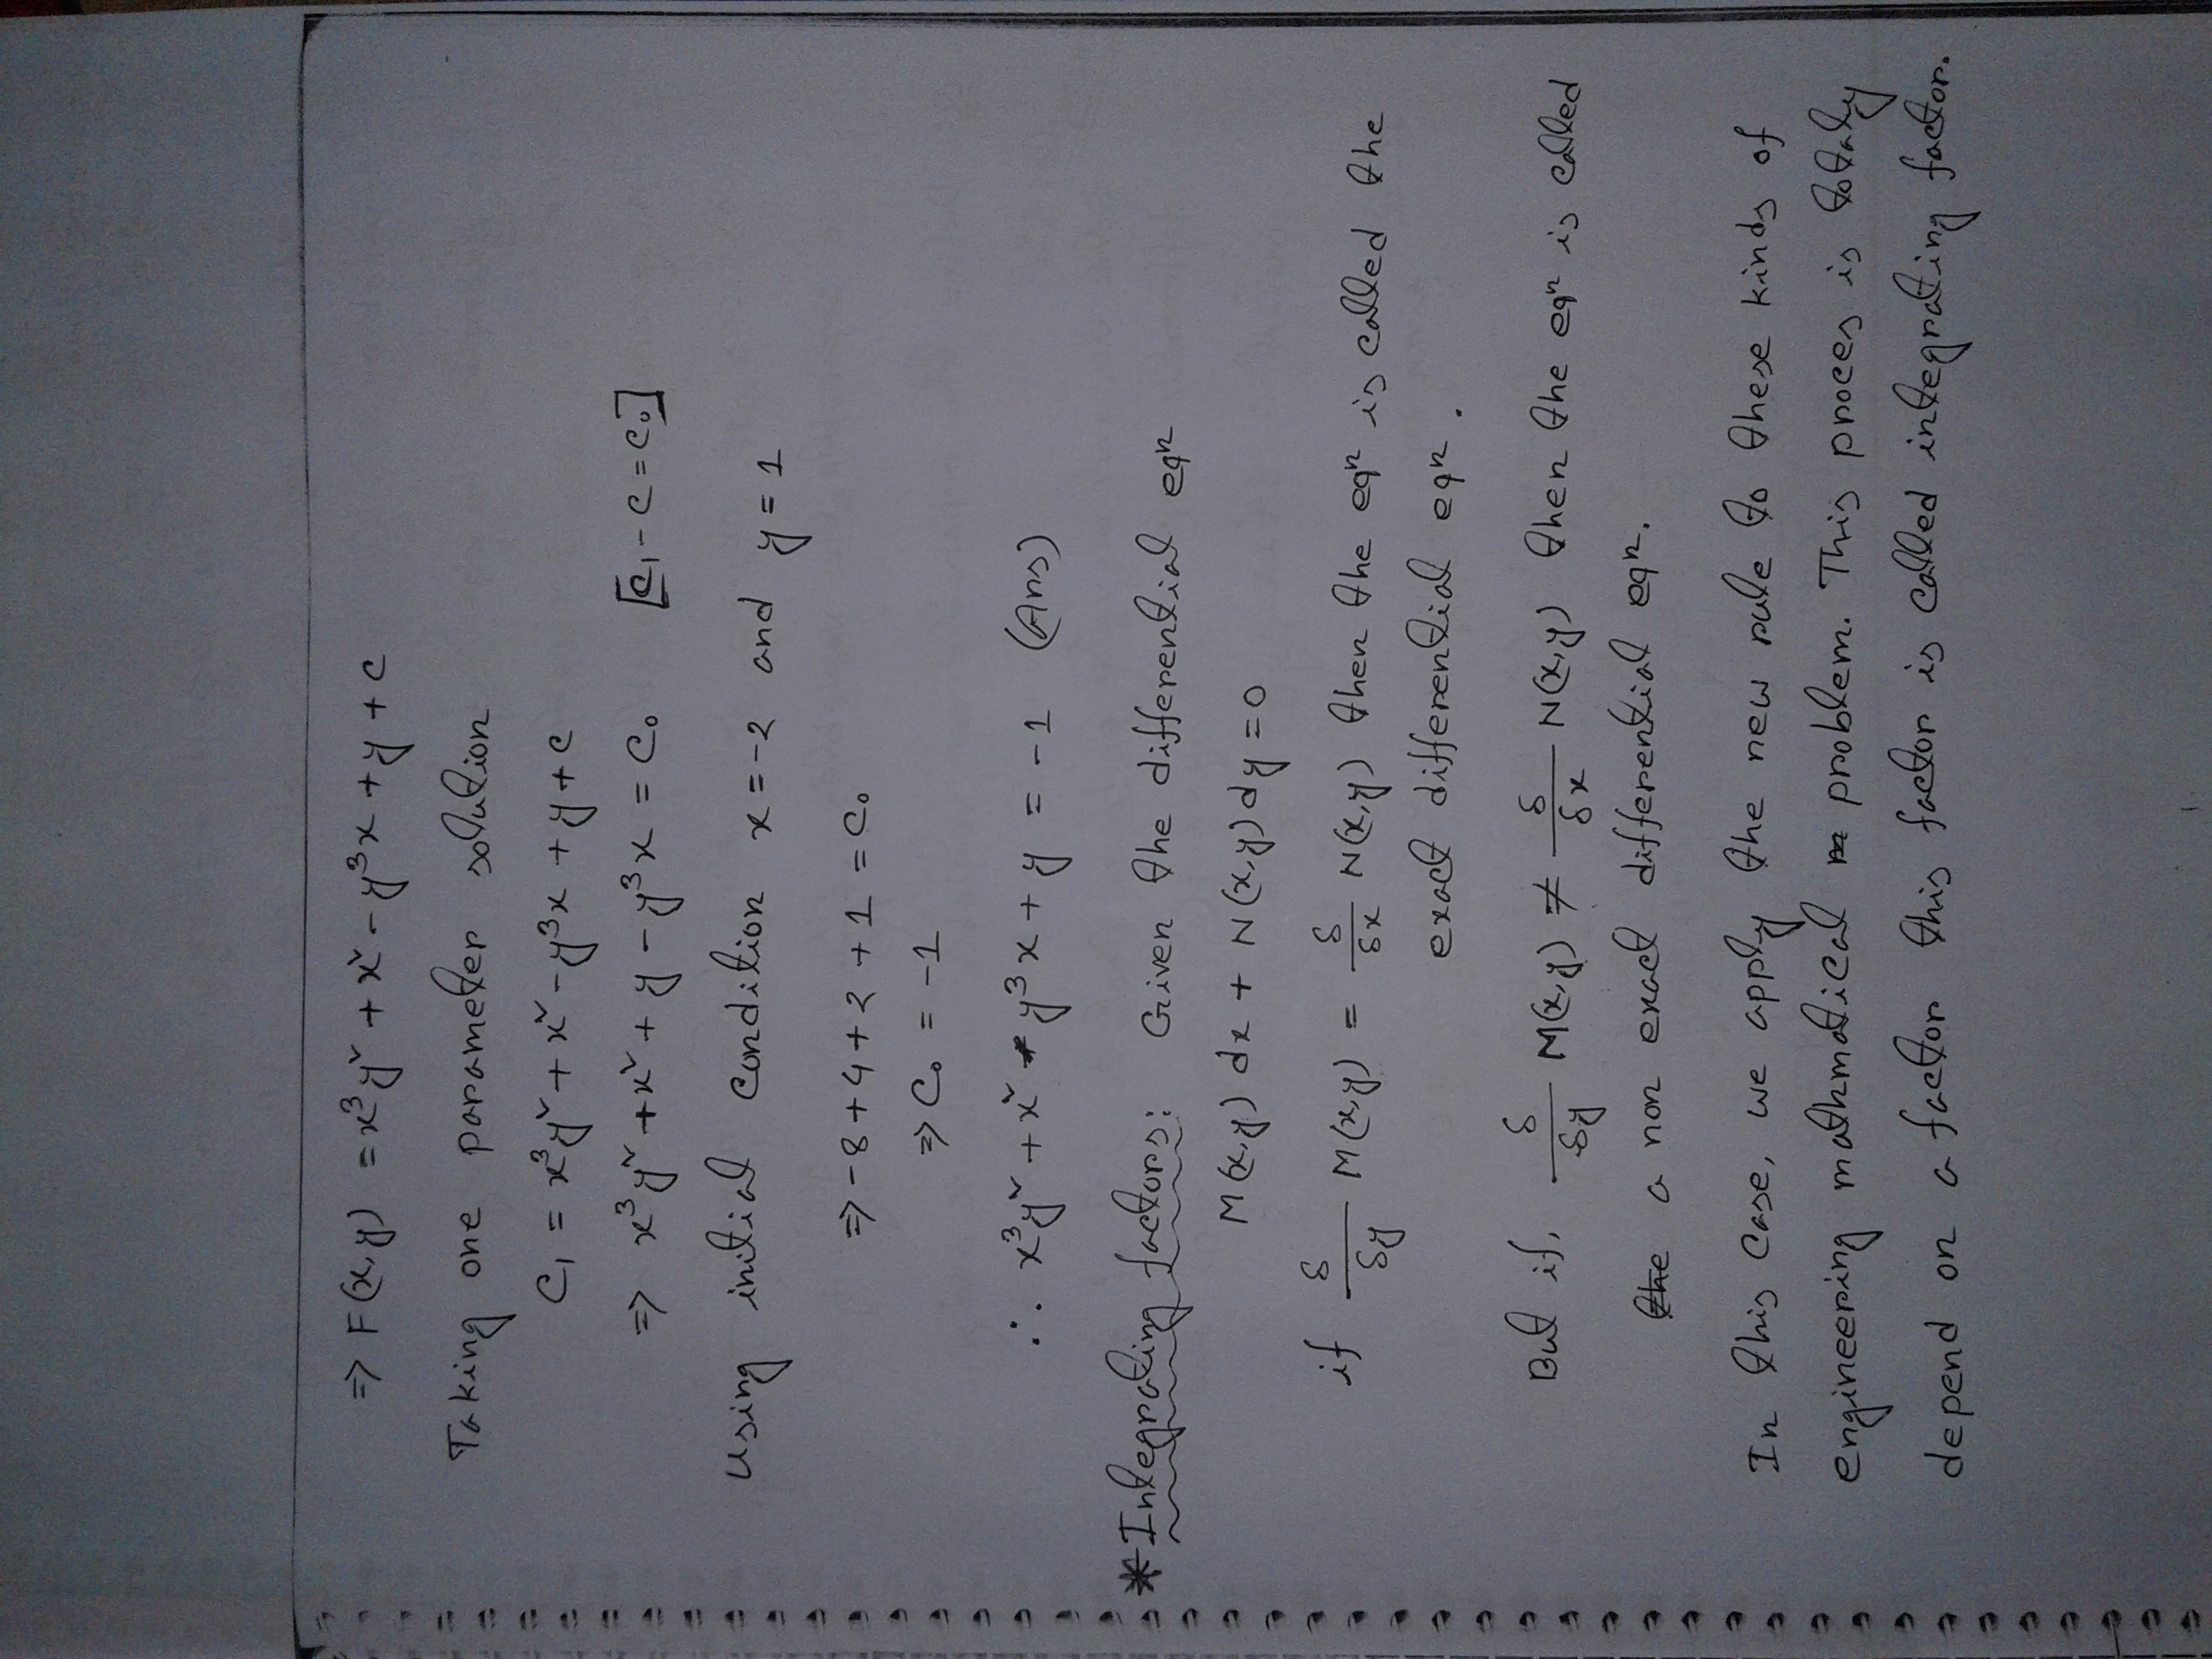 ⇒ F(x,y) = x³y² + x² - y³x + y + c
Taking one parameter solution
C₁ = x³y² + x² - y³x + y + c
⇒ x³y² + x² + y - y³x = C₀ [C₁ - C = C₀]
Using initial condition x = -2 and y = 1
⇒ -8 + 4 + 2 + 1 = C₀
⇒ C₀ = -1
∴ x³y² + x² - y³x + y = -1 (Ans)
* Integrating factors: Given the differential eqn
M(x,y) dx + N(x,y) dy = 0
if δ/δy M(x,y) = δ/δx N(x,y) then the eqn is called the
exact differential eqn.
But if, δ/δy M(x,y) ≠ δ/δx N(x,y) then the eqn is called
the a non exact differential eqn.
In this case, we apply the new rule to these kinds of
engineering mathmatical m problem. This proces is totaly
depend on a factor this factor is called integrating factor.